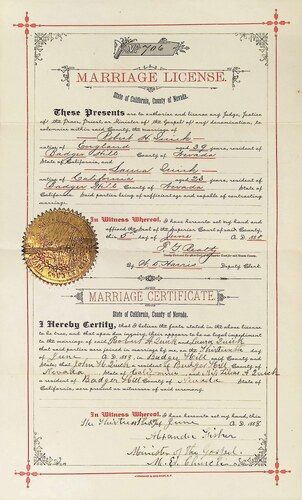 No 706
MARRIAGE LICENSE.
State of California, County of Nevada.
These Presents are to authorize and license any Judge, Justice
of the Peace, Priest, or Minister of the Gospel of any denomination, to
solemnize within said County, the marriage of
Robert H. Quick
native of England aged 39 years, resident of
Badger Hill County of Nevada
State of California, and
Laura Quick
native of California aged 23 years, resident of
Badger Hill County of Nevada State of
California. Said parties being of sufficient age and capable of contracting
marriage.
In Witness Whereof, I have hereunto set my hand and
affixed the seal of the Superior Court of said County,
this 5 day of June A. D. 1898
By W. D. Harris Deputy Clerk.
MARRIAGE CERTIFICATE.
State of California, County of Nevada.
I Hereby Certify, that I believe the facts stated in the above license
to be true, and that upon due inquiry, there appears to be no legal impediment
to the marriage of said Robert H. Quick and Laura Quick
that said parties were joined in marriage by me, on the Thirteenth
of June A. D. 1898, in Badger Hill, said County and
State; that John H. Quick a resident of Badger Hill County of
Nevada State of California and A. Quick
a resident of Badger Hill County of Nevada State of
California, were present as witnesses of said ceremony.
In Witness Whereof, I have hereunto set my hand, this
the Thirteenth day of June A. D. 1898
Alexander Fisher
Minister of the Gospel
M. E. Church